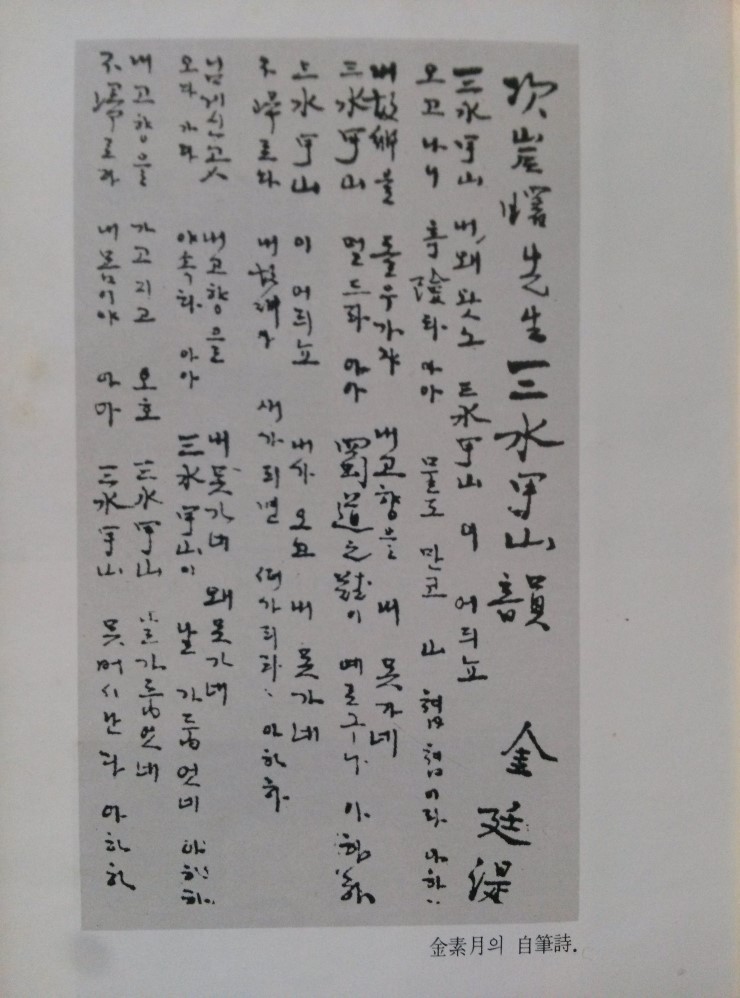 次岸曙先生三水甲山韻 金廷湜
三水甲山 내 왜 왓노 三水甲山이 어듸뇨
오고나니 奇險타 아아 물도 만코 山 쳡쳡이라 아하하
내故鄕을 돌우가쟈 내고향을 내 못가네
三水甲山 멀드라 아아 蜀道之難이 예로구나 아하하
三水甲山이 어듸뇨 내가 오고 내 못가네
不歸로다 내故鄕아 새가되면 떠가리라 아하하
님게신곳 내고향을 내못가네 왜못가네
오다가다 야속타 아아 三水甲山이 날 가둡엇네 아하하
내고향을 가고지고 오호 三水甲山 날가둡엇네
不歸로다 내몸이야 아아 三水甲山 못버서난다 아하하
金素月의 自筆詩.